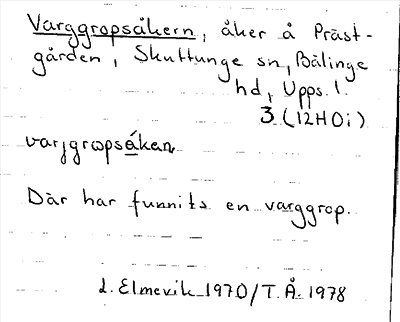 Varggropsåkern, åker å Präst-
gården, Skuttunge sn, Bälinge
hd, Upps. l.
3 (12H0i)
varjgrωpsåkan
Där har funnits en varggrop.
L. Elmevik 1970/T.Å. 1978